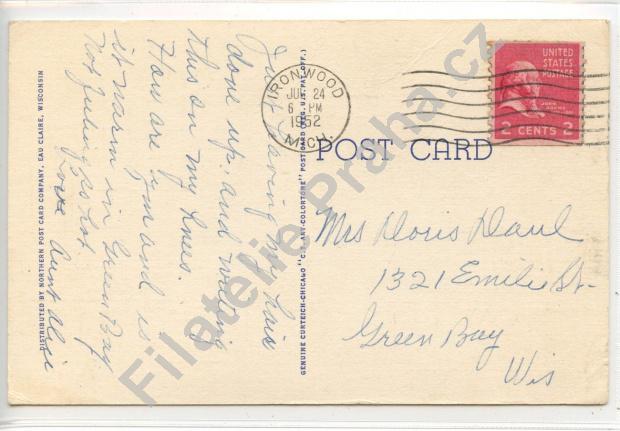 Just having my hair
done up, and writing
this on my knees.
How are you and is
it warm in Green Bay.
Not feeling so hot.
Love Aunt Alice
DISTRIBUTED BY NORTHERN POST CARD COMPANY, EAU CLAIRE, WISCONSIN
GENUINE CURTEICH-CHICAGO "C.T. ART-COLORTONE" POST CARD (REG. U.S. PAT. OFF.)
IRONWOOD
JUL 24
6 PM
1952
MICH.
UNITED
STATES
POSTAGE
JOHN ADAMS
2 CENTS 2
POST CARD
Mrs Doris Daul
1321 Emilie St-
Green Bay
Wis
Filatelie Praha.cz